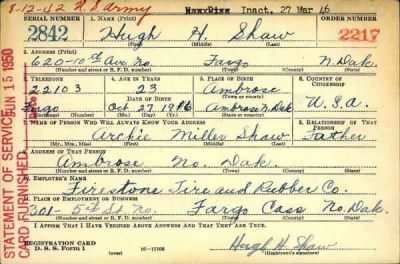 8-12-42 U.S. Army
Inact. 27 Mar 46
SERIAL NUMBER 1. NAME (Print) ORDER NUMBER
2842 Hugh H. Shaw 2217
(First) (Middle) (Last)
2. ADDRESS (Print)
620-10th Ave No. Fargo N. Dak.
(Number and street or R. F. D. number) (Town) (County) (State)
3. TELEPHONE 4. AGE IN YEARS 5. PLACE OF BIRTH 6. COUNTRY OF CITIZENSHIP
22103 23 Ambrose
DATE OF BIRTH (Town or county)
Fargo Oct 27 1916 Ambrose N. Dak U.S.A.
(Exchange) (Number) (Mo.) (Day) (Yr.) (State or country)
7. NAME OF PERSON WHO WILL ALWAYS KNOW YOUR ADDRESS 8. RELATIONSHIP OF THAT PERSON
Archie Miller Shaw Father
(Mr., Mrs., Miss) (First) (Middle) (Last)
9. ADDRESS OF THAT PERSON
Ambrose No. Dak.
(Number and street or R. F. D. number) (Town) (County) (State)
10. EMPLOYER'S NAME
Firestone Tire and Rubber Co.
11. PLACE OF EMPLOYMENT OR BUSINESS
301- 5th St. No. Fargo Cass No. Dak.
(Number and street or R. F. D. number) (Town) (County) (State)
I AFFIRM THAT I HAVE VERIFIED ABOVE ANSWERS AND THAT THEY ARE TRUE.
REGISTRATION CARD
D. S. S. Form 1 16-17105 Hugh H Shaw
(Registrant's signature)
STATEMENT OF SERVICE JUN 15 1950
CARD FURNISHED